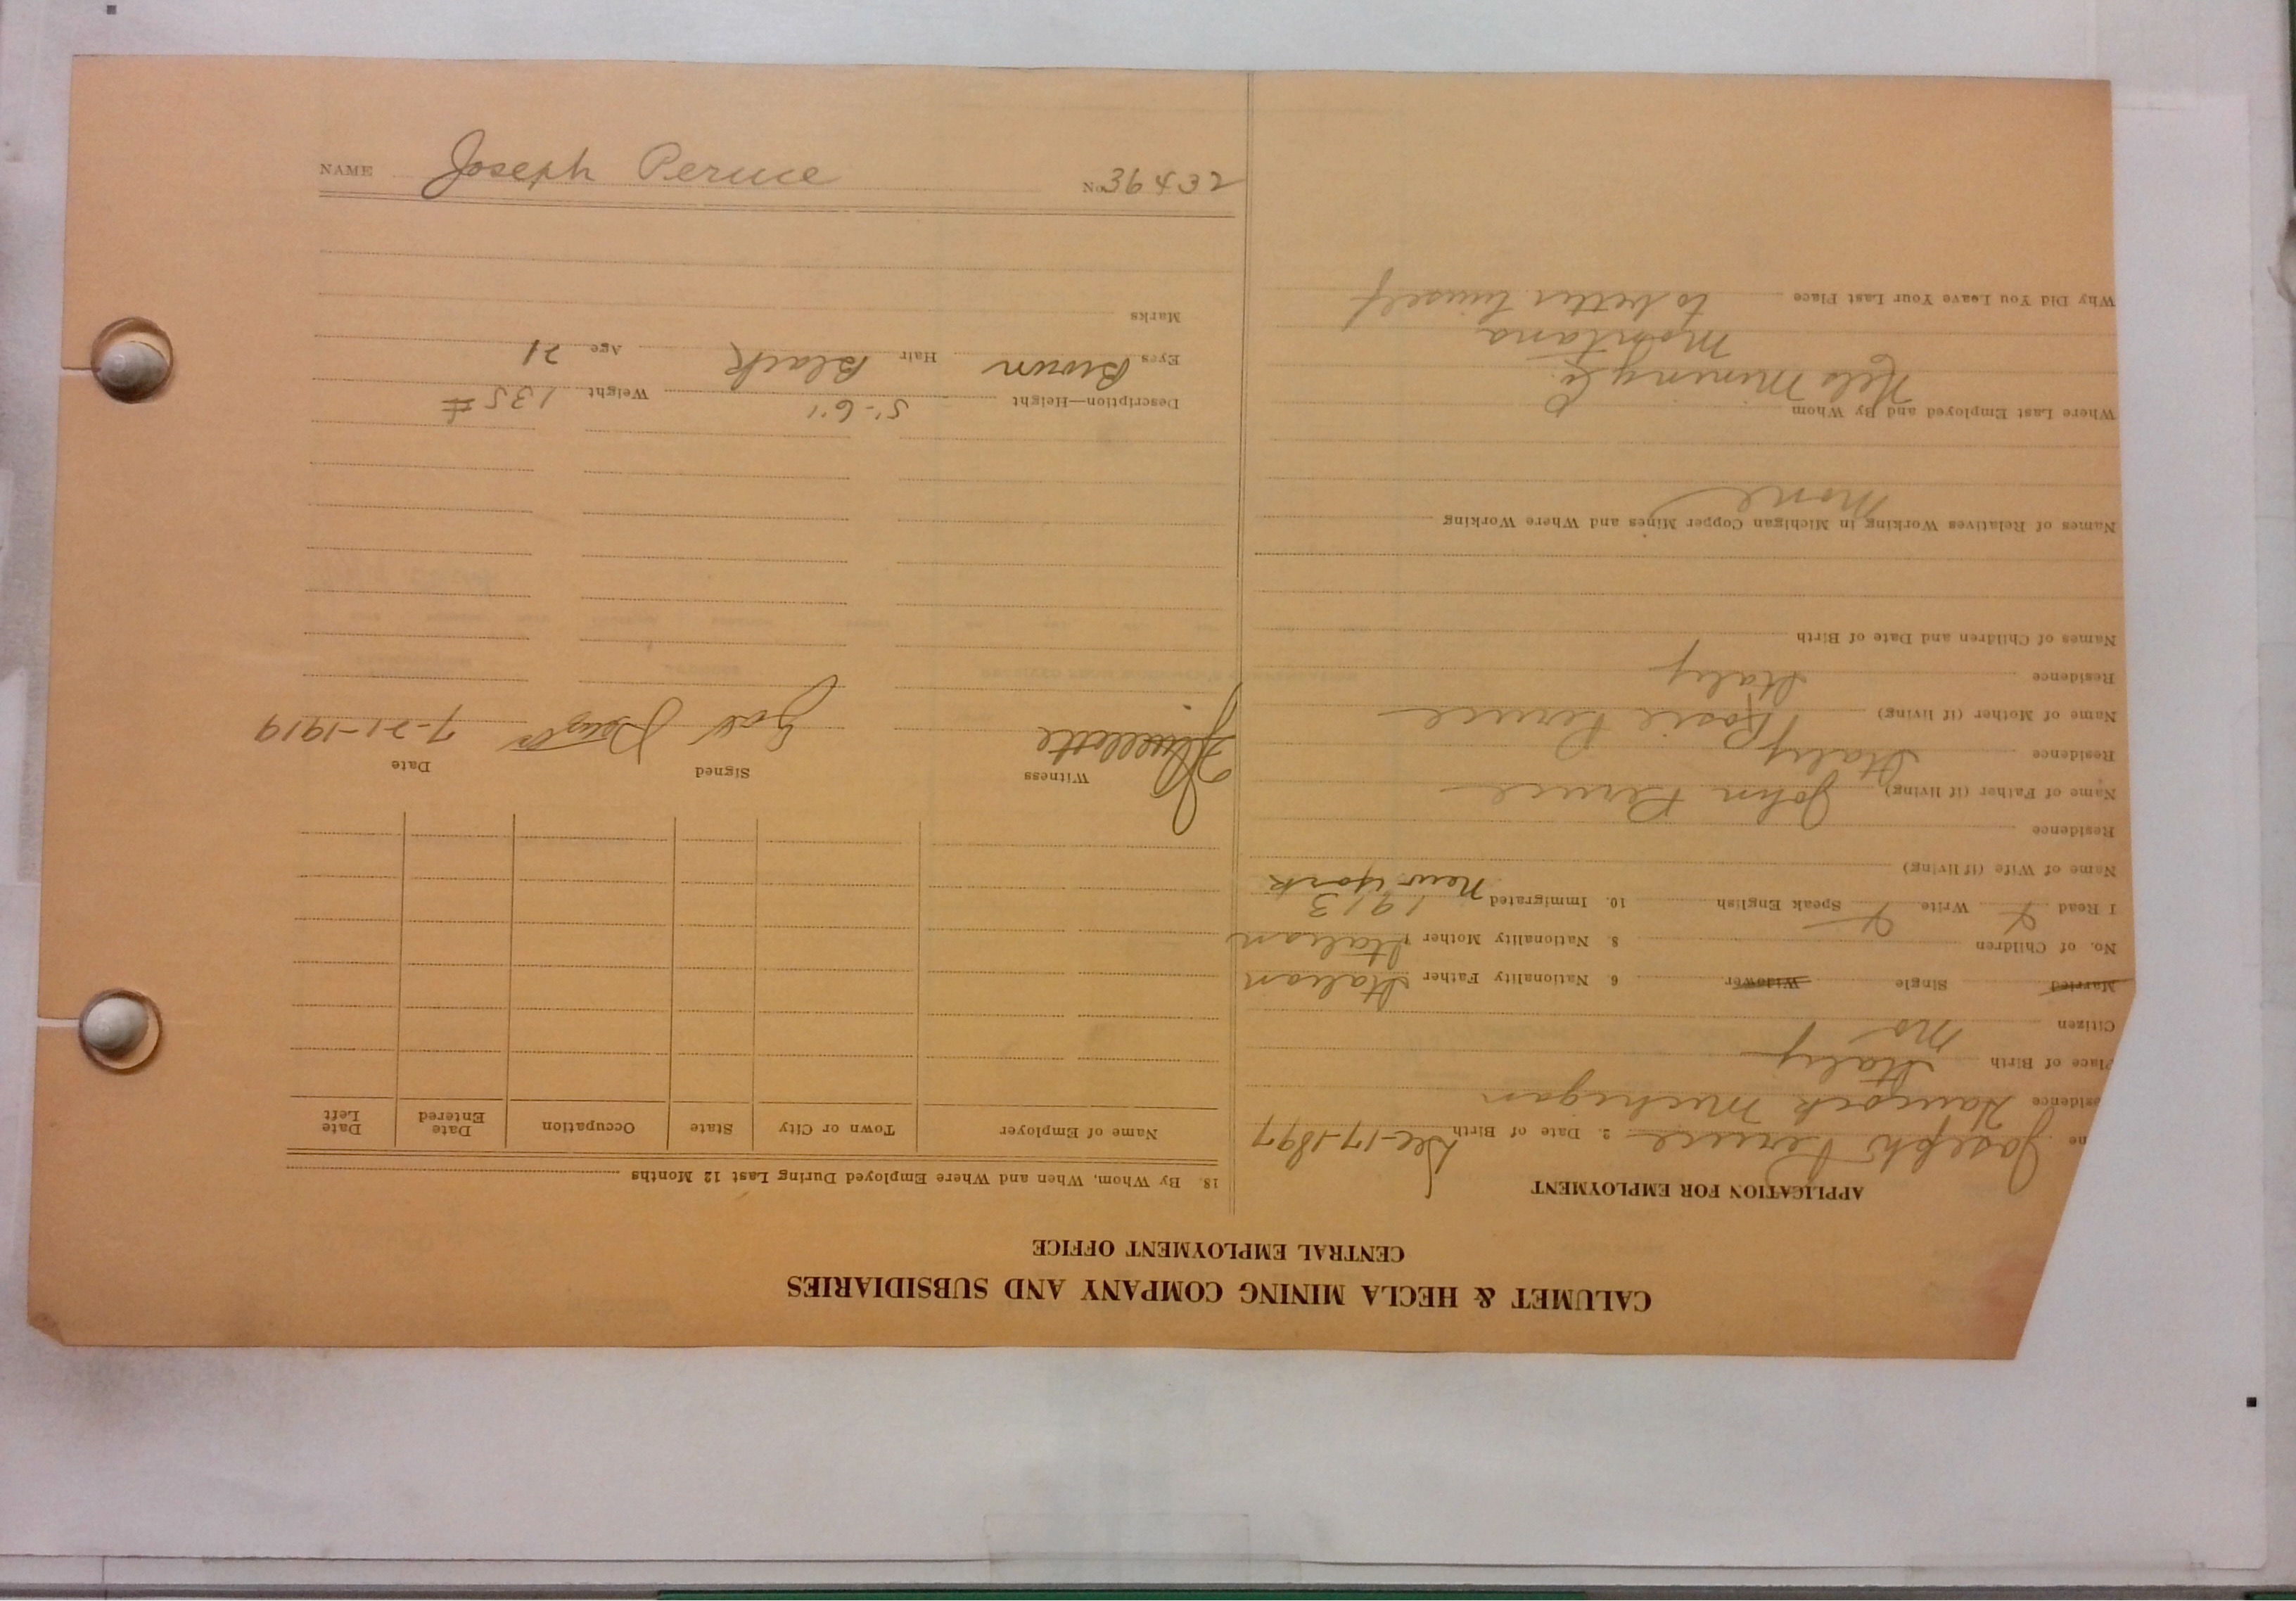 CALUMET & HECLA MINING COMPANY AND SUBSIDIARIES
CENTRAL EMPLOYMENT OFFICE
APPLICATION FOR EMPLOYMENT
me Joseph Peruce 2. Date of Birth Dec-17-1897
esidence Hancock Michigan
Place of Birth Italy
Citizen No
Married Single Widower 6 Nationality Father Italian
No. of Children 8. Nationality Mother Italian
I Read Write Speak English 10. Immigrated 1913
New York
Name of Wife (if living)
Residence
Name of Father (if living) John Peruce
Residence Italy
Name of Mother (if living) Rosie Peruce
Residence Italy
Names of Children and Date of Birth
Names of Relatives Working in Michigan Copper Mines and Where Working
None
Where Last Employed and By Whom
Mining Co.
Montana
Why Did You Leave Your Last Place to better himself
18. By Whom, When and Where Employed During Last 12 Months
Name of Employer Town or City State Occupation Date Entered Date Left
Witness Signed Date
7-21-1919
Description—Height 5'-6" Weight 135 #
Eyes Brown Hair Black Age 21
Marks
NAME Joseph Peruce No. 36432